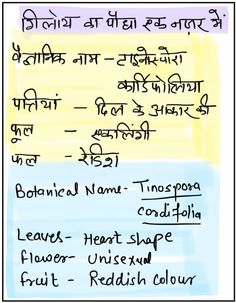 गिलोय का पौधा एक नज़र में
वैज्ञानिक नाम - टाइनोस्पोरा
कार्डिफोलिया
पत्तियां - दिल के आकार की
फूल - एकलिंगी
फल - रेडिश
Botanical Name- Tinospora
cordifolia
Leaves- Heart shape
flower- Unisexual
fruit - Reddish colour